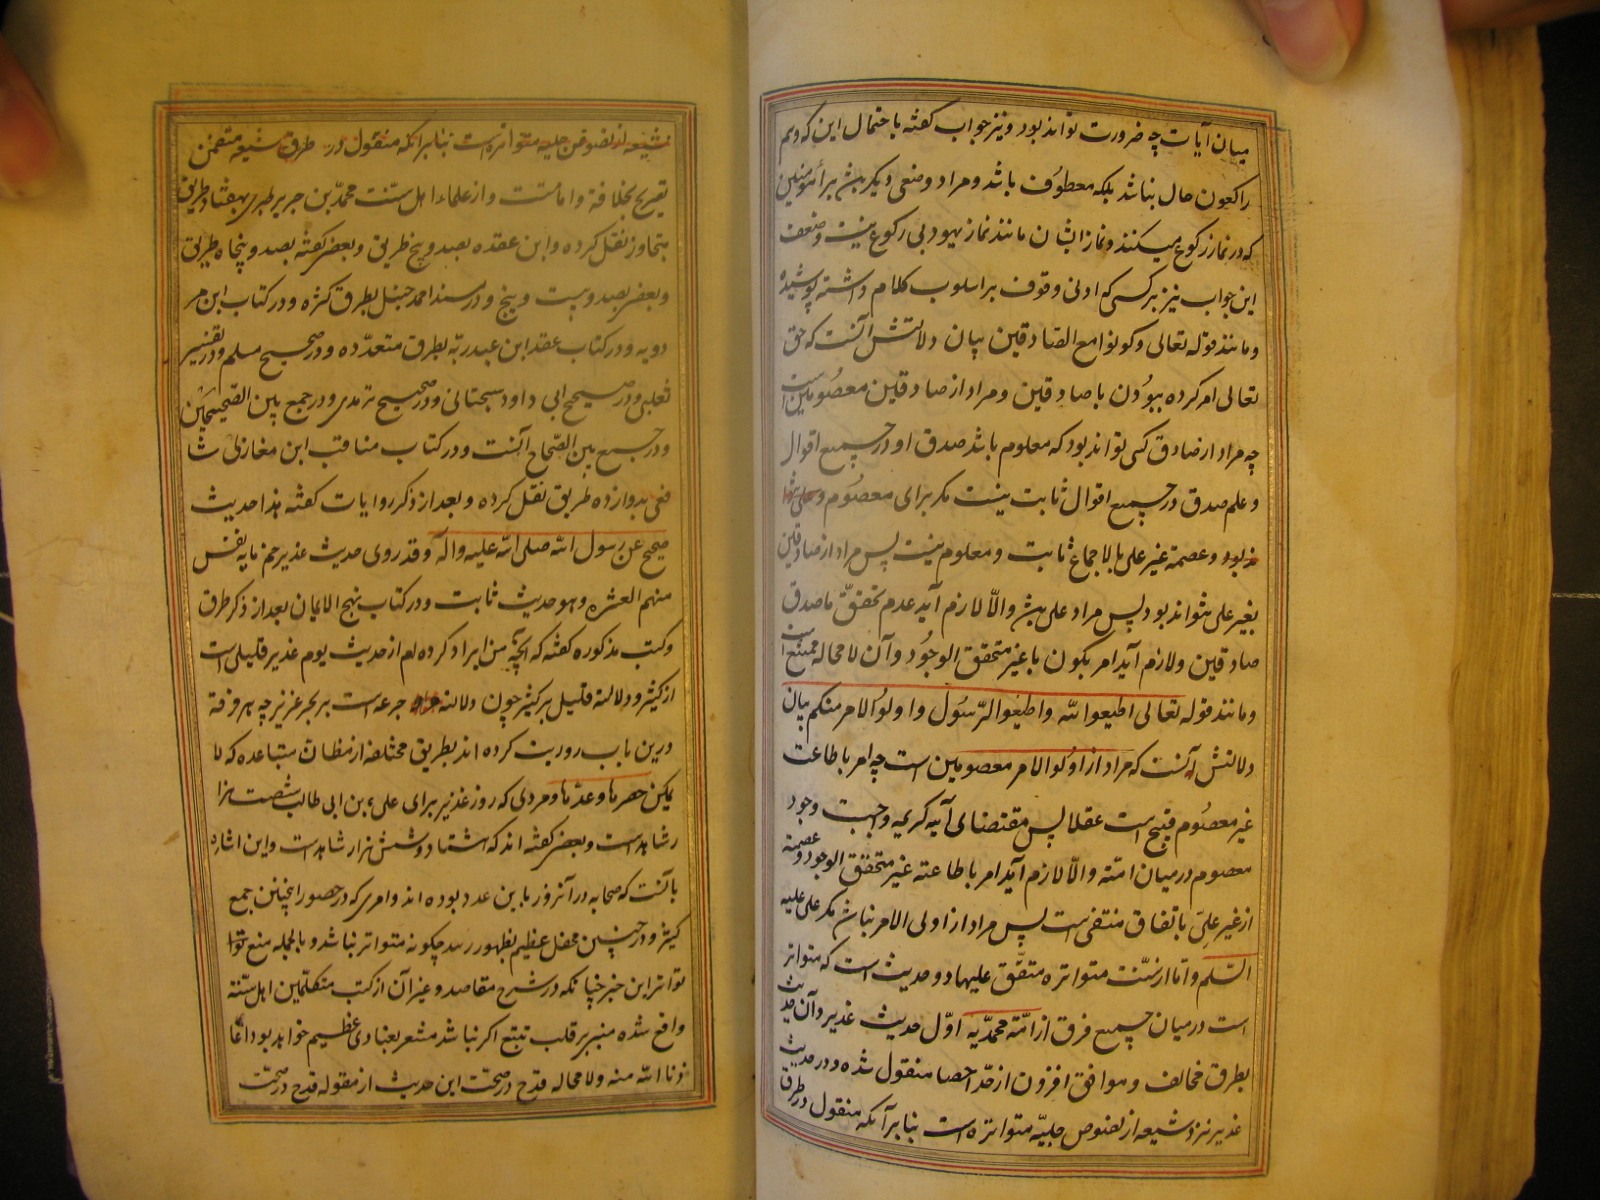 میان آیات چه ضرورت تواند بود و نیز جواب کفته باحتمال این که و هم
راکعون حال نباشد بلکه معطوف باشد و مراد وضعی دیکر باشد برای مؤمنین
که در نماز رکوع میکنند و نماز ایشان مانند نماز یهود بی رکوع نیست و ضعف
این جواب نیز بر کسی که ادنی وقوف بر اسلوب کلام داشته پوشیده
و مانند قوله تعالی و کونوا مع الصادقین بیان دلالتش آنست که حق
تعالی امر کرده ببودن با صادقین و مراد از صادقین معصومین است
چه مراد از صادق کسی تواند بود که معلوم باشد صدق او در جمیع اقوال
و علم صدق در جمیع اقوال ثابت نیست مکر برای معصوم و
نبود و عصمة غیر علی بالاجماع ثابت و معلوم نیست پس مراد از صادقین
بغیر علی نتواند بود پس مراد علی باشد و الّا لازم آید عدم تحقق ما صدق
صادقین و لازم آید امر بکون با غیر متحقق الوجود و آن لا محاله ممتنع است
و مانند قوله تعالی اطیعوا الله و اطیعوا الرّسول و اولوالامر منکم بیان
دلالتش آنست که مراد از اولوالامر معصومین است چه امر باطاعت
غیر معصوم قبیح است عقلا پس مقتضای آیه کریمه واجبست وجود
معصوم در میان امّة و الّا لازم آید امر باطاعة غیر متحقق الوجود و عصمة
از غیر علی باتفاق منتفی است پس مراد از اولی الامر نباشد مکر علی علیه
السّلم و اما از سنّت متواتره متّفق علیها دو حدیث است که متواتر
است در میان جمیع فرق از امّة محمّدیه اوّل حدیث غدیر و آن حدیث
بطرق مخالف و موافق افزون از حدّ احصا منقول شده و در حدیث
غدیر نزد شیعه از نصوص جلیّه متواتره است بنابر آنکه منقول در طرق
شیعه از نصوص جلیه متواتره است بنابر آنکه منقول در طرق شیعه متضمن
تصریح بخلافة و امامتست و از علماء اهل سنّت محمّد بن جریر طبری بهفتاد طریق
متجاوز نقل کرده و ابن عقده بصد و پنج طریق و بعضی کفته بصد و پنجاه طریق
و بعضی بصد و بیست و پنج و در مسند احمد حنبل بطرق کثره و در کتاب ابن مر
دویه و در کتاب عقد ابن عبد ربّه بطرق متعدّده و در صحیح مسلم و در تفسیر
ثعلبی و در صحیح ابی داود سجستانی و در صحیح ترمدی و در جمع بین الصّحیحین
و در جمع بین الصّحاح السّت و در کتاب مناقب ابن مغازلی شا
فعی بدوازده طریق نقل کرده و بعد از ذکر روایات کفته هذا حدیث
صحیح عن رسول الله صلی الله علیه و اله و قد روی حدیث غدیر خم مایة نفس
منهم العشره و هو حدیث ثابت و در کتاب نهج الایمان بعد از ذکر طرق
و کتب مذکوره کفته که آنچه من ایراد کرده ام از حدیث یوم غدیر قلیلی است
از کثیر و دلالة قلیل بر کثیر چون دلالة جرعه است بر بحر غزیر چه هر فرقة
درین باب روایت کرده اند بطریق مختلفه از مظان متباعده که لا
یمکن حصرها و عدّها و مردی که روز غدیر برای علی بن ابی طالب شصت هزا
ر شاهد است و بعضی کفته اند که هشتاد و شش هزار شاهد است و این اشاره
بآنست که صحابه در آنروز باین عدد بوده اند و امری که در حضور اینچنین جمع
کثیر و در چنین محفل عظیم بظهور رسد چکونه متواتر نباشد و بالجمله منع
تواتر این خبر چنانکه در شرح مقاصد و غیر آن از کتب متکلّمین اهل سنّة
واقع شده مبنی بر قلت تتبع اکر نباشد مشعر بعنادی عظیم خواهد بود اعا
ذنا الله منه و لا محاله قدح در صحّت این حدیث از مقوله قدح در صحّت